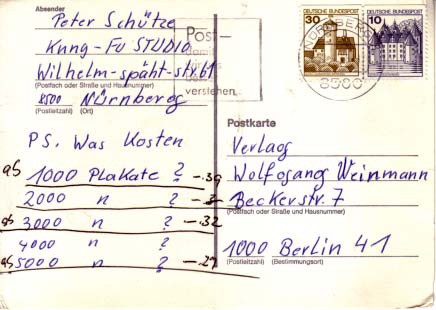 Absender
Peter Schütze
Kung-Fu STUDIO
Wilhelm-späht-str.61
(Postfach oder Straße und Hausnummer)
8500 Nürnberg
(Postleitzahl) (Ort)
PS. Was Kosten
ab 1000 Plakate ? -.39
2000 n ?
ab 3000 n ? -.32
4000 n ?
ab 5000 n ?
Post-
verstehen.
30
DEUTSCHE BUNDESPOST
10
DEUTSCHE BUNDESPOST
NÜRNBERG
8500
Postkarte
Verlag
Wolfgang Weinmann
Beckerstr. 7
(Postfach oder Straße und Hausnummer)
1000 Berlin 41
(Postleitzahl) (Bestimmungsort)